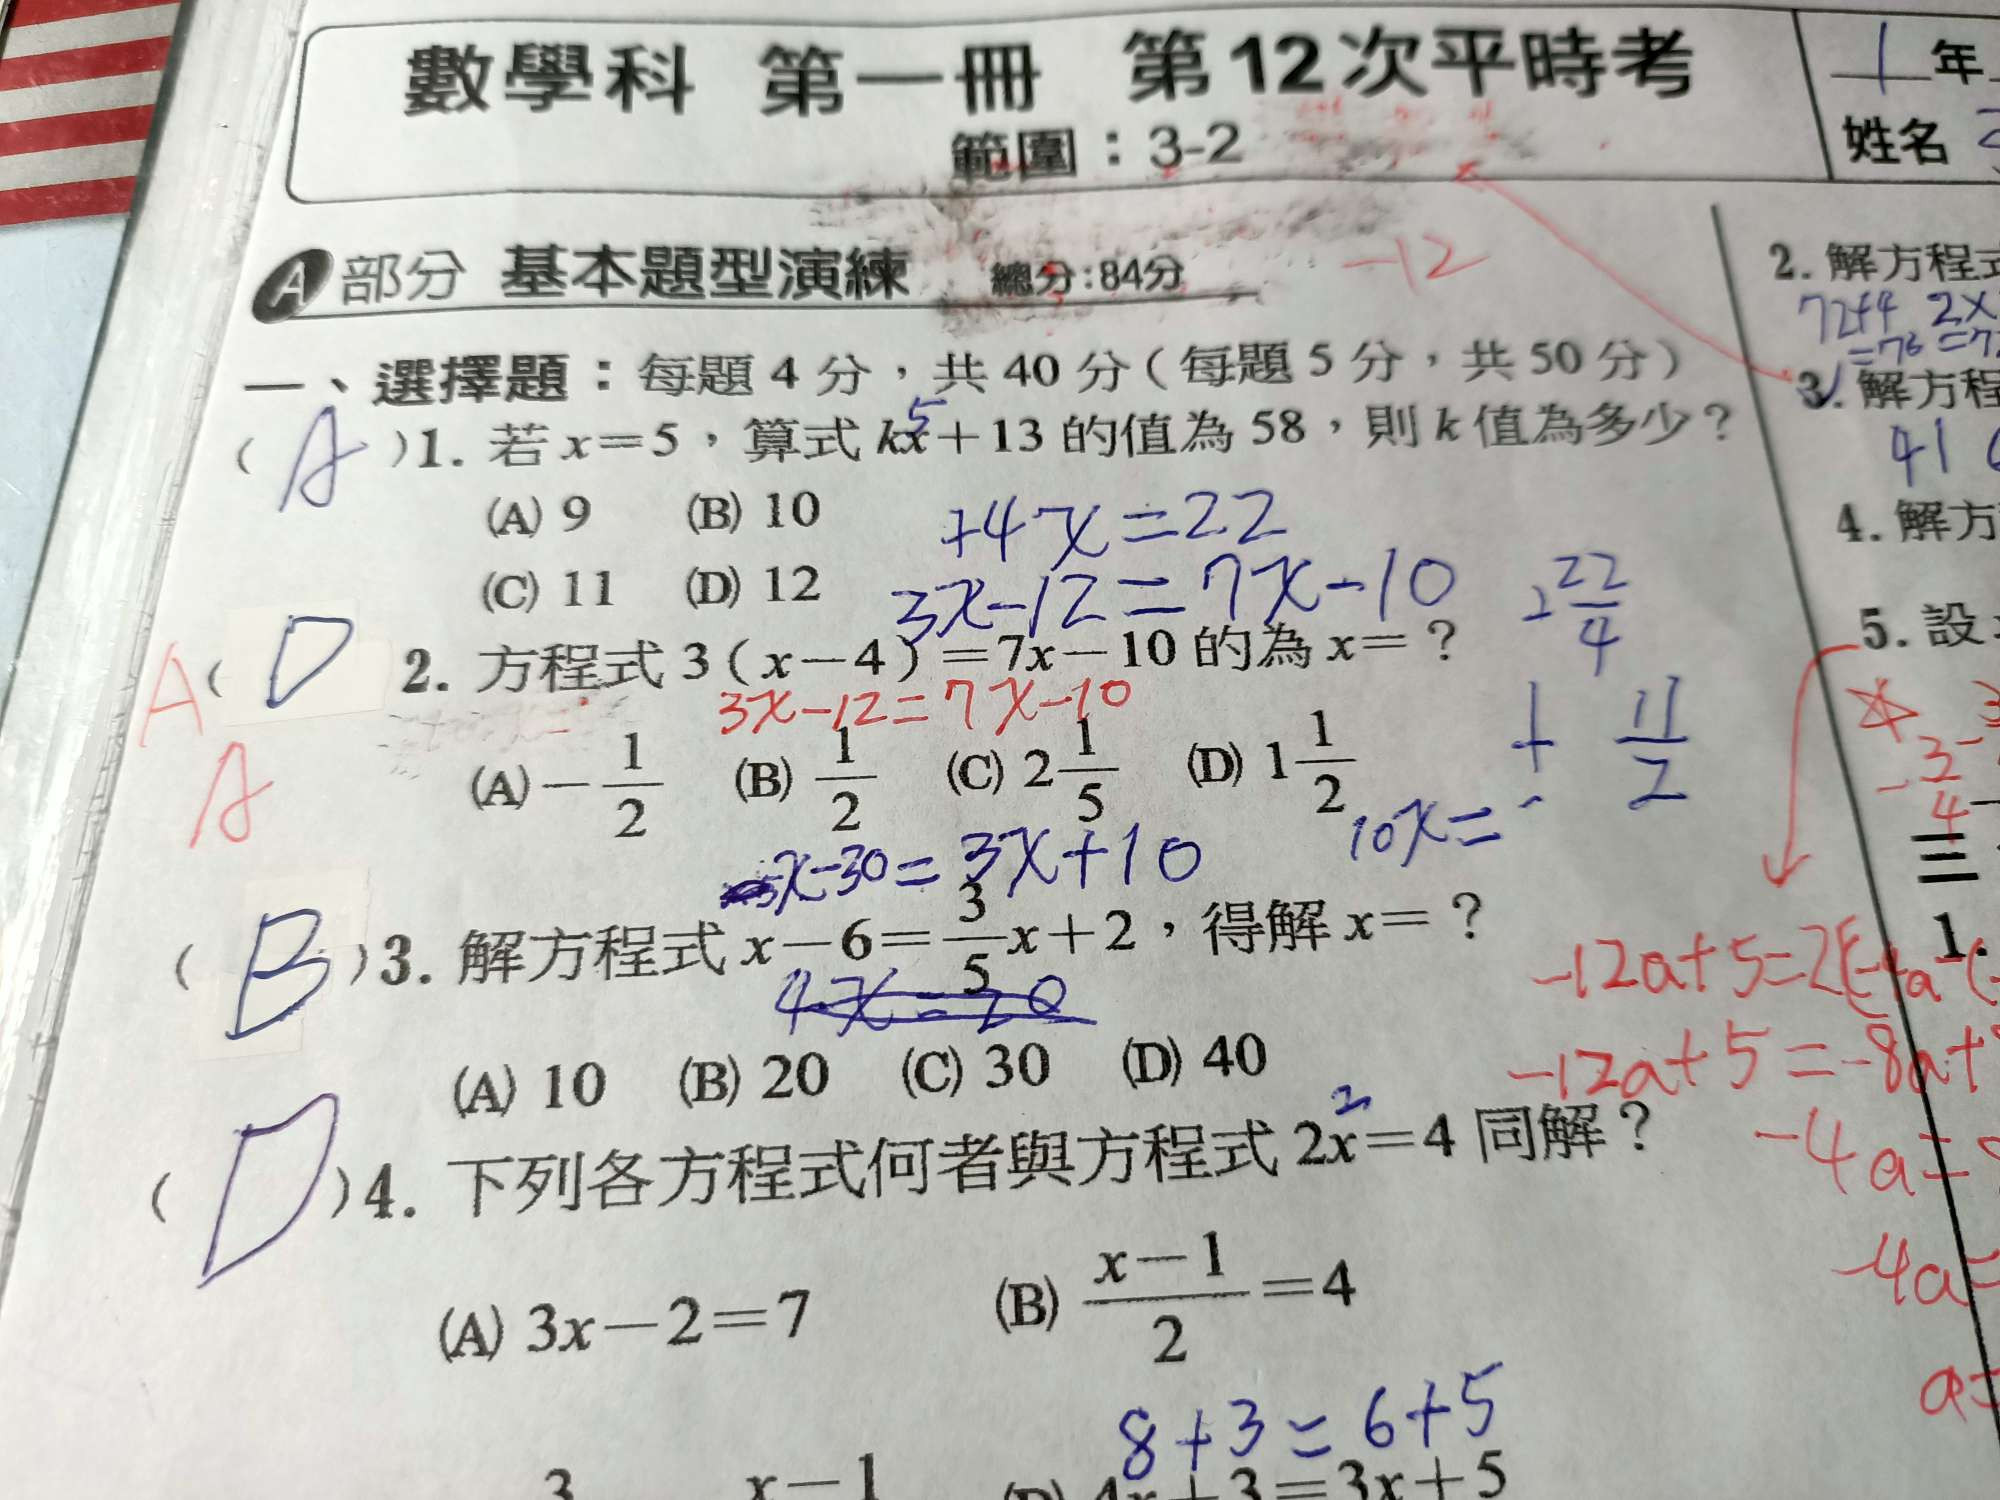 數學科 第一冊 第12次平時考
範圍：3-2
1年
姓名
A部分 基本題型演練 總分:84分
-12
一、選擇題：每題4分，共40分（每題5分，共50分）
5
( A )1. 若x=5，算式kx+13的值為58，則k值為多少？
(A) 9 (B) 10
+4x=22
(C) 11 (D) 12
3x-12=7x-10
22/4
A ( D 2. 方程式3（x-4）=7x-10的為x=？
3x-12=7x-10
A
(A) -1/2 (B) 1/2 (C) 2 1/5 (D) 1 1/2
11/2
10x=
x-30=3x+10
( B )3. 解方程式x-6=3/5x+2，得解x=？
(A) 10 (B) 20 (C) 30 (D) 40
2
( D )4. 下列各方程式何者與方程式2x=4同解？
(A) 3x-2=7 (B) x-1/2=4
8+3=6+5
3 x-1 (D) 4x+3=3x+5
2. 解方程式
72+4 2x
=76 =7
3. 解方程
41
4. 解方
5. 設
三
1.
-12a+5=2
-12a+5=-8a+
-4a=
-4a=
a=